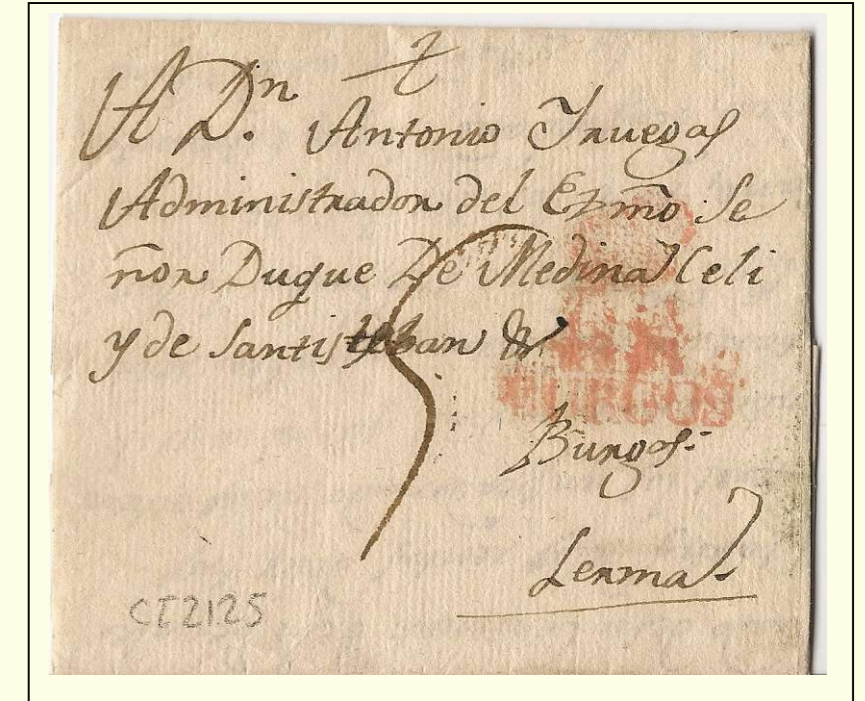 A D.n Antonio Yruegas
Administrador del Exmõ Se
ñor Duque De Medina Celi
y de Santisteban &
5
BURGOS
Burgos.
Lerma.
CI2125